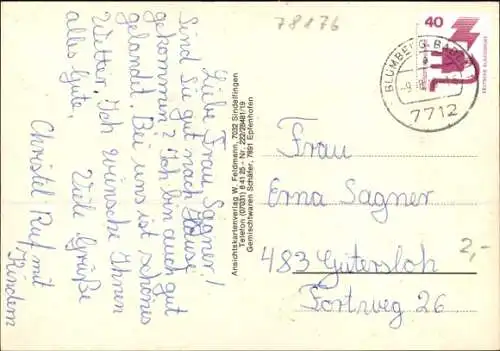 78176
Liebe Frau Sagner!
Sind Sie gut nach Hause
gekommen? Ich bin auch gut
gelandet. Bei uns ist schönes
Wetter. Ich wünsche Ihnen
alles Gute.
Viele Grüße
Christel Ruf mit
Kindern
Ansichtskartenverlag W. Feldmann, 7032 Sindelfingen
Telefon (07031) 84125 - Nr. 222/28481/19
Gemischtwaren Schäfer, 7891 Epfenhofen
40
DEUTSCHE BUNDESPOST
BLUMBERG, BADEN
7712
Frau
Erna Sagner
483 Gütersloh
Fortweg 26
2,-